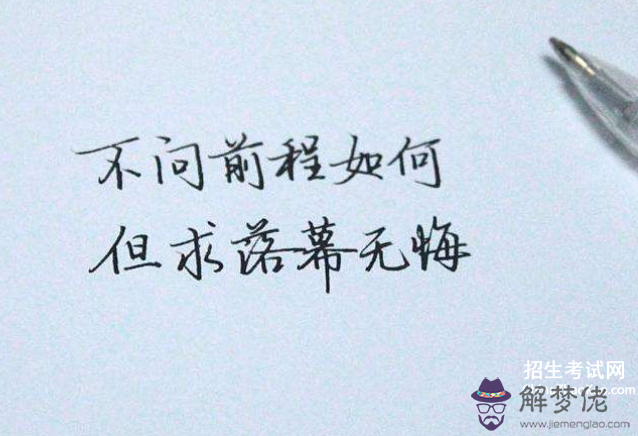 不问前程如何
但求落幕无悔
招生考试网
解梦佬
www.jiemenglao.com